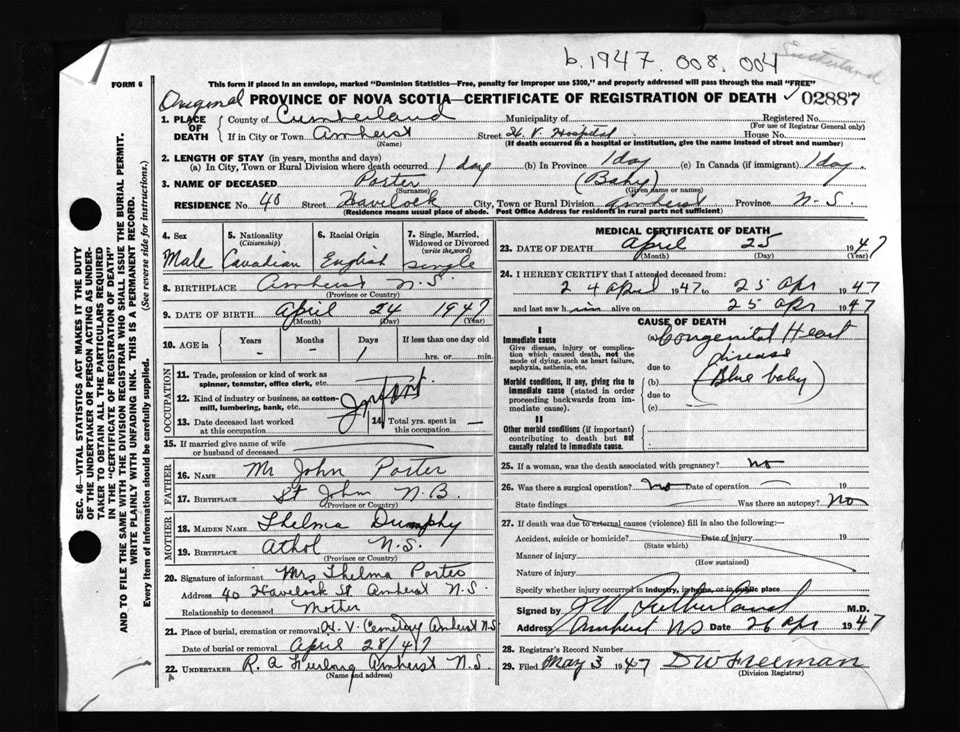 b.1947. 008. 004
Sutherland
FORM 6
This form if placed in an envelope, marked "Dominion Statistics—Free, penalty for improper use $300," and properly addressed will pass through the mail "FREE"
Original PROVINCE OF NOVA SCOTIA—CERTIFICATE OF REGISTRATION OF DEATH 02887
1. PLACE OF DEATH County of Cumberland Municipality of Registered No.
(For use of Registrar General only)
If in City or Town Amherst Street H. V. Hospital House No.
(Name) (If death occurred in a hospital or institution, give the name instead of street and number)
2. LENGTH OF STAY (in years, months and days)
(a) In City, Town or Rural Division where death occurred 1 day (b) In Province 1 day (c) In Canada (if immigrant) 1 day.
3. NAME OF DECEASED Porter (Baby)
(Surname) (Given name or names)
RESIDENCE No. 40 Street Havelock City, Town or Rural Division Amherst Province N-S.
(Residence means usual place of abode. Post Office Address for residents in rural parts not sufficient)
4. Sex Male
5. Nationality (Citizenship) Canadian
6. Racial Origin English
7. Single, Married, Widowed or Divorced (write the word) single
8. BIRTHPLACE Amherst N.S.
(Province or Country)
9. DATE OF BIRTH April 24 1947
(Month) (Day) (Year)
10. AGE in Years Months Days If less than one day old
- - 1 hrs. or min.
OCCUPATION
11. Trade, profession or kind of work as spinner, teamster, office clerk, etc.
12. Kind of industry or business, as cotton-mill, lumbering, bank, etc. Infant
13. Date deceased last worked at this occupation
14. Total yrs. spent in this occupation —
15. If married give name of wife or husband of deceased
FATHER
16. NAME Mr John Porter
17. BIRTHPLACE St John N.B.
MOTHER
18. MAIDEN NAME Thelma Dumphy
19. BIRTHPLACE Athol N.S.
(Province or Country)
20. Signature of informant Mrs Thelma Porter
Address 40 Havelock St. Amherst N.S.
Relationship to deceased Moter
21. Place of burial, cremation or removal H. V. Cemetery Amherst N.S
Date of burial or removal April 28/47
22. UNDERTAKER R. A Furlong Amherst N.S.
(Name and address)
MEDICAL CERTIFICATE OF DEATH
23. DATE OF DEATH April 25 1947
(Month) (Day) (Year)
24. I HEREBY CERTIFY that I attended deceased from:
24 April 1947 to 25 Apr 1947
and last saw him alive on 25 Apr 1947
CAUSE OF DEATH
I
Immediate cause
Give disease, injury or complication which caused death, not the mode of dying, such as heart failure, asphyxia, asthenia, etc.
(a) Congenital Heart
disease
due to
Morbid conditions, if any, giving rise to immediate cause (stated in order proceeding backwards from immediate cause).
(b) (Blue baby)
due to
(c)
II
Other morbid conditions (if important) contributing to death but not causally related to immediate cause.
25. If a woman, was the death associated with pregnancy? no
26. Was there a surgical operation? no Date of operation — 19
State findings Was there an autopsy? No
27. If death was due to external causes (violence) fill in also the following:—
Accident, suicide or homicide? Date of injury 19
(State which)
Manner of injury
(How sustained)
Nature of injury
Specify whether injury occurred in industry, in home, or in public place
Signed by J W Sutherland M.D.
Address Amherst NS Date 26 Apr 1947
28. Registrar's Record Number
29. Filed May 3 1947 D W Freeman
(Division Registrar)
SEC. 46—VITAL STATISTICS ACT MAKES IT THE DUTY
OF THE UNDERTAKER OR PERSON ACTING AS UNDER-
TAKER TO OBTAIN ALL THE PARTICULARS REQUIRED
IN THE "CERTIFICATE OF REGISTRATION OF DEATH"
AND TO FILE THE SAME WITH THE DIVISION REGISTRAR WHO SHALL ISSUE THE BURIAL PERMIT.
WRITE PLAINLY WITH UNFADING INK. THIS IS A PERMANENT RECORD.
Every item of information should be carefully supplied. (See reverse side for instructions.)